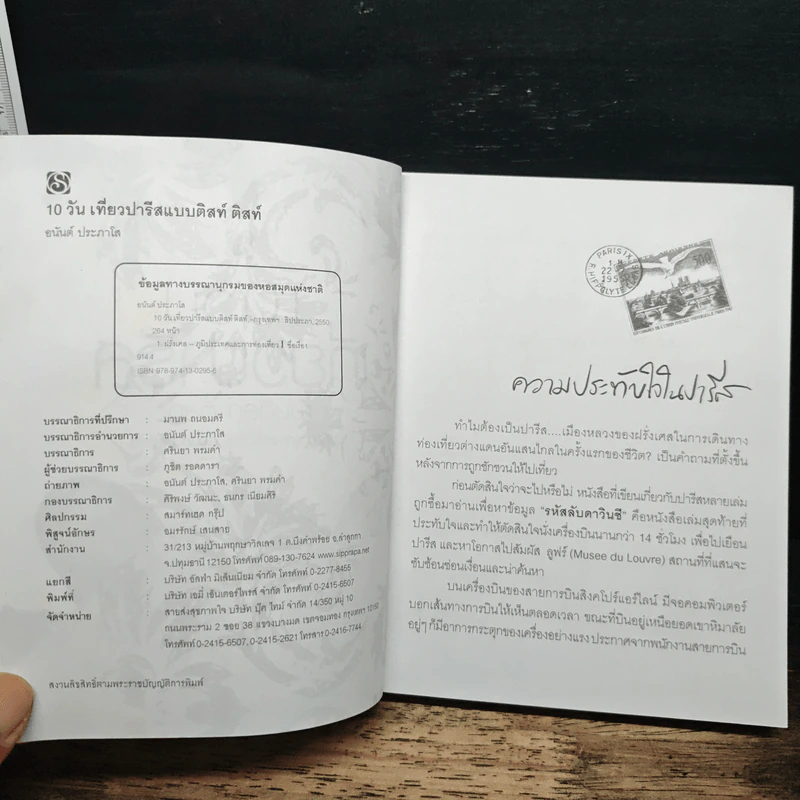 10 วัน เที่ยวปารีสแบบติสท์ ติสท์
อนันต์ ประภาโส
ข้อมูลทางบรรณานุกรมของหอสมุดแห่งชาติ
อนันต์ ประภาโส
10 วัน เที่ยวปารีสแบบติสท์ ติสท์.-กรุงเทพฯ : สิปประภา, 2550
264 หน้า
1. ฝรั่งเศส - ภูมิประเทศและการท่องเที่ยว I ชื่อเรื่อง
914.4
ISBN 978-974-13-0295-6
บรรณาธิการที่ปรึกษา : มานพ ถนอมศรี
บรรณาธิการอำนวยการ : อนันต์ ประภาโส
บรรณาธิการ : ศรินยา พรมคำ
ผู้ช่วยบรรณาธิการ : ภูชิต รอดดารา
ถ่ายภาพ : อนันต์ ประภาโส, ศรินยา พรมคำ
กองบรรณาธิการ : ศิริพงษ์ วัฒนะ, ธนกร เนียมศิริ
ศิลปกรรม : สมาร์ทเฮด กรุ๊ป
พิสูจน์อักษร : อมรรักษ์ เสนสาย
สำนักงาน : 31/213 หมู่บ้านพฤกษาวิลเลจ 1 ต.บึงคำพร้อย อ.ลำลูกกา
จ.ปทุมธานี 12150 โทรศัพท์ 089-130-7624 www.sipprapa.net
แยกสี : บริษัท อัลฟ่า มิเล็นเนียม จำกัด โทรศัพท์ 0-2277-8455
พิมพ์ที่ : บริษัท เอมี่ เอ็นเตอร์ไพรส์ จำกัด โทรศัพท์ 0-2415-6507
จัดจำหน่าย : สายส่งสุขภาพใจ บริษัท บุ๊ค ไทม์ จำกัด 14/350 หมู่ 10
ถนนพระราม 2 ซอย 38 แขวงบางมด เขตจอมทอง กรุงเทพฯ 10150
โทรศัพท์ 0-2415-6507, 0-2415-2621 โทรสาร 0-2416-7744
สงวนลิขสิทธิ์ตามพระราชบัญญัติการพิมพ์
PARIS IX
ความประทับใจในปารีส
ทำไมต้องเป็นปารีส....เมืองหลวงของฝรั่งเศสในการเดินทาง
ท่องเที่ยวต่างแดนอันแสนไกลในครั้งแรกของชีวิต? เป็นคำถามที่ตั้งขึ้น
หลังจากการถูกชักชวนให้ไปเที่ยว
ก่อนตัดสินใจว่าจะไปหรือไม่ หนังสือที่เขียนเกี่ยวกับปารีสหลายเล่ม
ถูกซื้อมาอ่านเพื่อหาข้อมูล "รหัสลับดาวินชี" คือหนังสือเล่มสุดท้ายที่
ประทับใจและทำให้ตัดสินใจนั่งเครื่องบินนานกว่า 14 ชั่วโมง เพื่อไปเยือน
ปารีส และหาโอกาสไปสัมผัส ลูฟร์ (Musee du Louvre) สถานที่ที่แสนจะ
ซับซ้อนซ่อนเงื่อนและน่าค้นหา
บนเครื่องบินของสายการบินสิงคโปร์แอร์ไลน์ มีจอคอมพิวเตอร์
บอกเส้นทางการบินให้เห็นตลอดเวลา ขณะที่บินอยู่เหนือยอดเขาหิมาลัย
อยู่ๆ ก็มีอาการกระตุกของเครื่องอย่างแรง ประกาศจากพนักงานสายการบิน